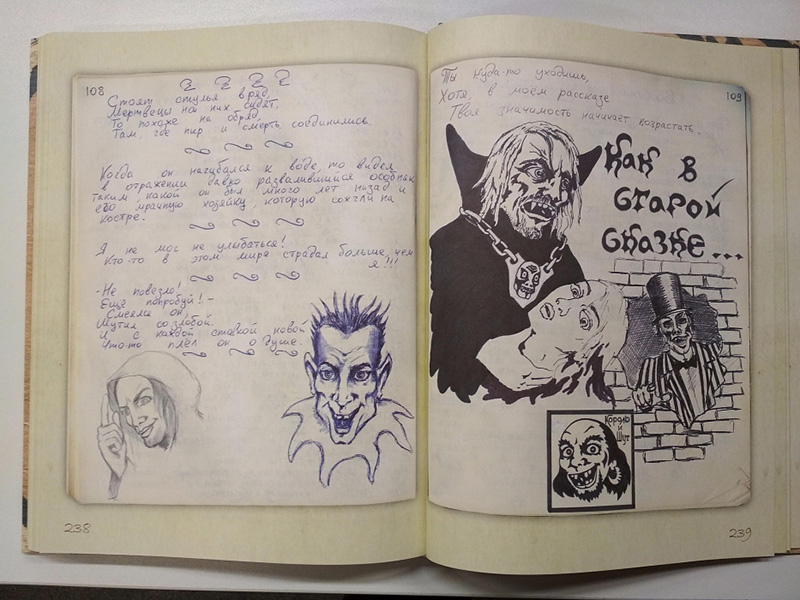 108
Стоят стулья в ряд,
Мертвецы на них сидят,
То похоже на обряд,
Там, где пир и смерть соединились.
Когда он нагибался к воде, то видел
в отражении давно развалившийся особняк
таким, какой он был много лет назад и
его мрачную хозяйку, которую сожгли на
костре.
Я не мог не улыбаться!
Кто-то в этом мире страдал больше, чем
я!!!
-Не повезло!
Ещё попробуй! -
Смеялся он,
Шутил со злобой.
И с каждой ставкой новой
Что-то плёл он о душе.
238
Ты куда-то уходишь,
109
Хотя, в моём рассказе
Твоя значимость начинает возрастать.
Как в
старой
сказке...
Король
и
Шут
239